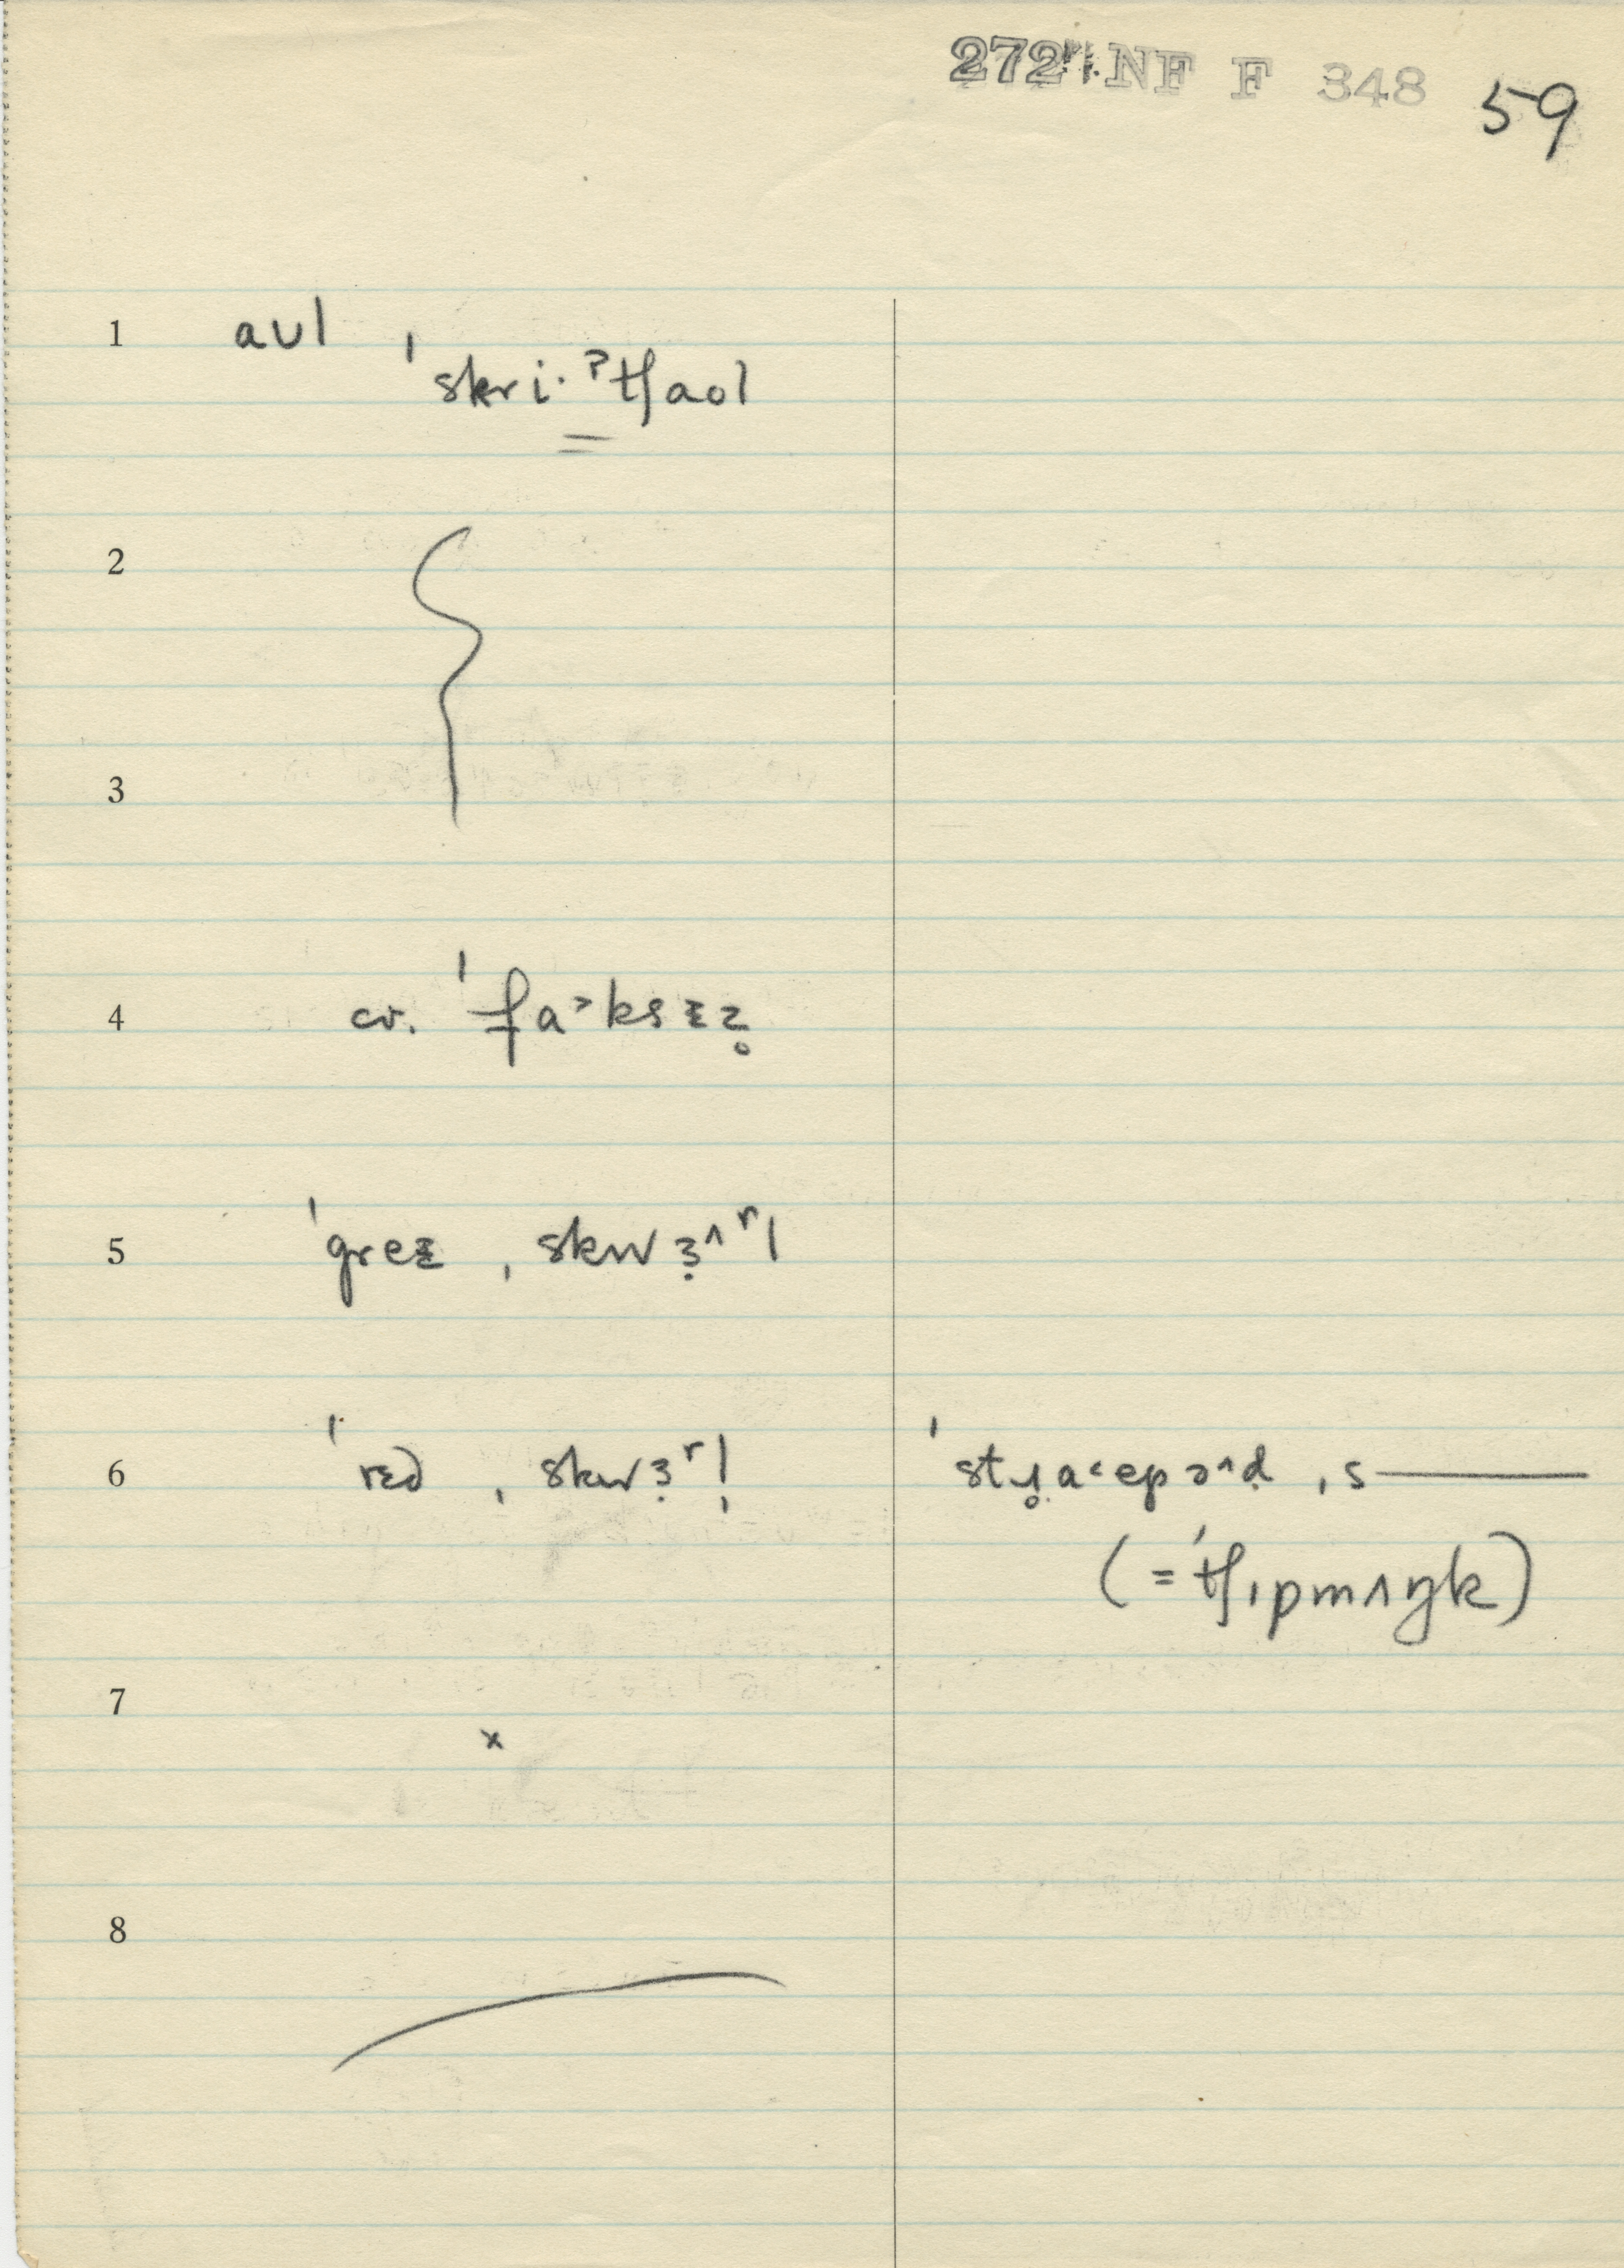 272 NF F 348 59
1 aʊl ˌ
skri·ˀtʃaol
2
3
4 cv. ˈfa˃ksɪz̥
5 ˈgreɪ ˌskwɜ˄ʳl
6 ˈrɛd ˌskwɜʳl̩ ˌs
(=ˈtʃɪpmʌŋk)
7 x
8